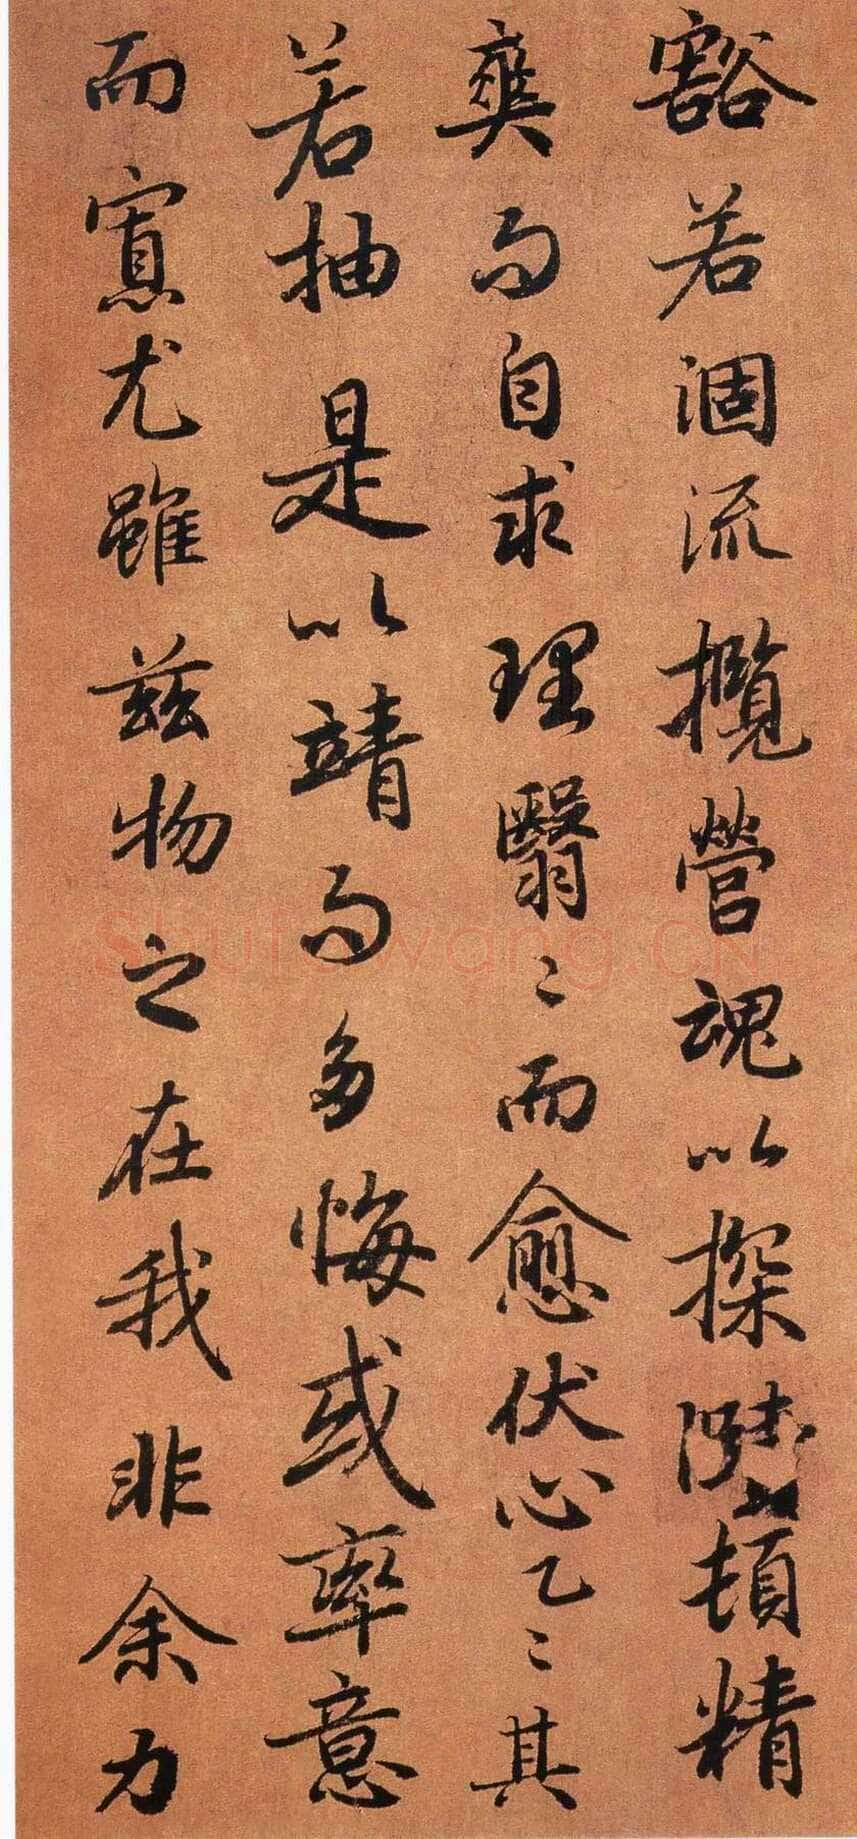 豁若涸流攬營魂以探賾頓精
爽而自求理翳〻而愈伏心乙〻其
若抽是以竭而多悔或率意
而寡尤雖茲物之在我非余力
Shufawang.CN